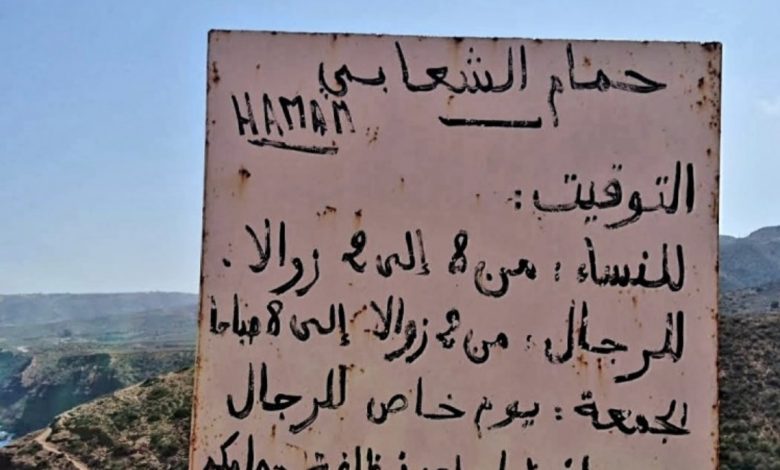 حمام الشعابي
HAMAM
التوقيت :
للنساء : من 8 إلى 2 زوالا .
للرجال : من 2 زوالا إلى 8 صباحا
الجمعة : يوم خاص للرجال